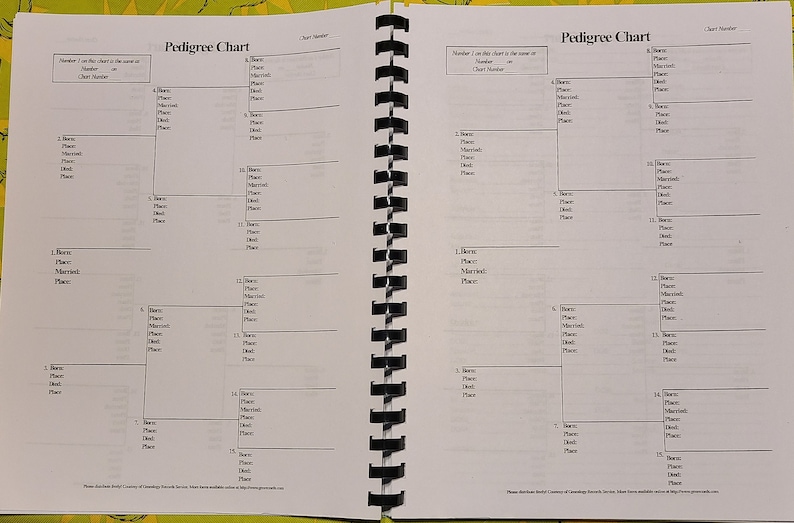 Pedigree Chart
Chart Number
Number 1 on this chart is the same as
Number on
Chart Number
8. Born:
Place:
Married:
Place:
Died:
Place:
4. Born:
Place:
Married:
Place:
Died:
Place:
9. Born:
Place:
Died:
Place
2. Born:
Place:
Married:
Place:
Died:
Place:
10. Born:
Place:
Married:
Place:
Died:
Place:
5. Born:
Place:
Died:
Place
11. Born:
Place:
Died:
Place
1. Born:
Place:
Married:
Place:
12. Born:
Place:
Married:
Place:
Died:
Place:
6. Born:
Place:
Married:
Place:
Died:
Place:
13. Born:
Place:
Died:
Place
3. Born:
Place:
Died:
Place
14. Born:
Place:
Married:
Place:
Died:
Place:
7. Born:
Place:
Died:
Place
15. Born:
Place:
Died:
Place
Please distribute freely! Courtesy of Genealogy Records Service. More forms available online at
Pedigree Chart
Chart Number
Number 1 on this chart is the same as
Number on
Chart Number
8. Born:
Place:
Married:
Place:
Died:
Place:
4. Born:
Place:
Married:
Place:
Died:
Place:
9. Born:
Place:
Died:
Place
2. Born:
Place:
Married:
Place:
Died:
Place:
10. Born:
Place:
Married:
Place:
Died:
Place:
5. Born:
Place:
Died:
Place
11. Born:
Place:
Died:
Place
1. Born:
Place:
Married:
Place:
12. Born:
Place:
Married:
Place:
Died:
Place:
6. Born:
Place:
Married:
Place:
Died:
Place:
13. Born:
Place:
Died:
Place
3. Born:
Place:
Died:
Place
14. Born:
Place:
Married:
Place:
Died:
Place:
7. Born:
Place:
Died:
Place
15. Born:
Place:
Died:
Place
Please distribute freely! Courtesy of Genealogy Records Service. More forms available online at